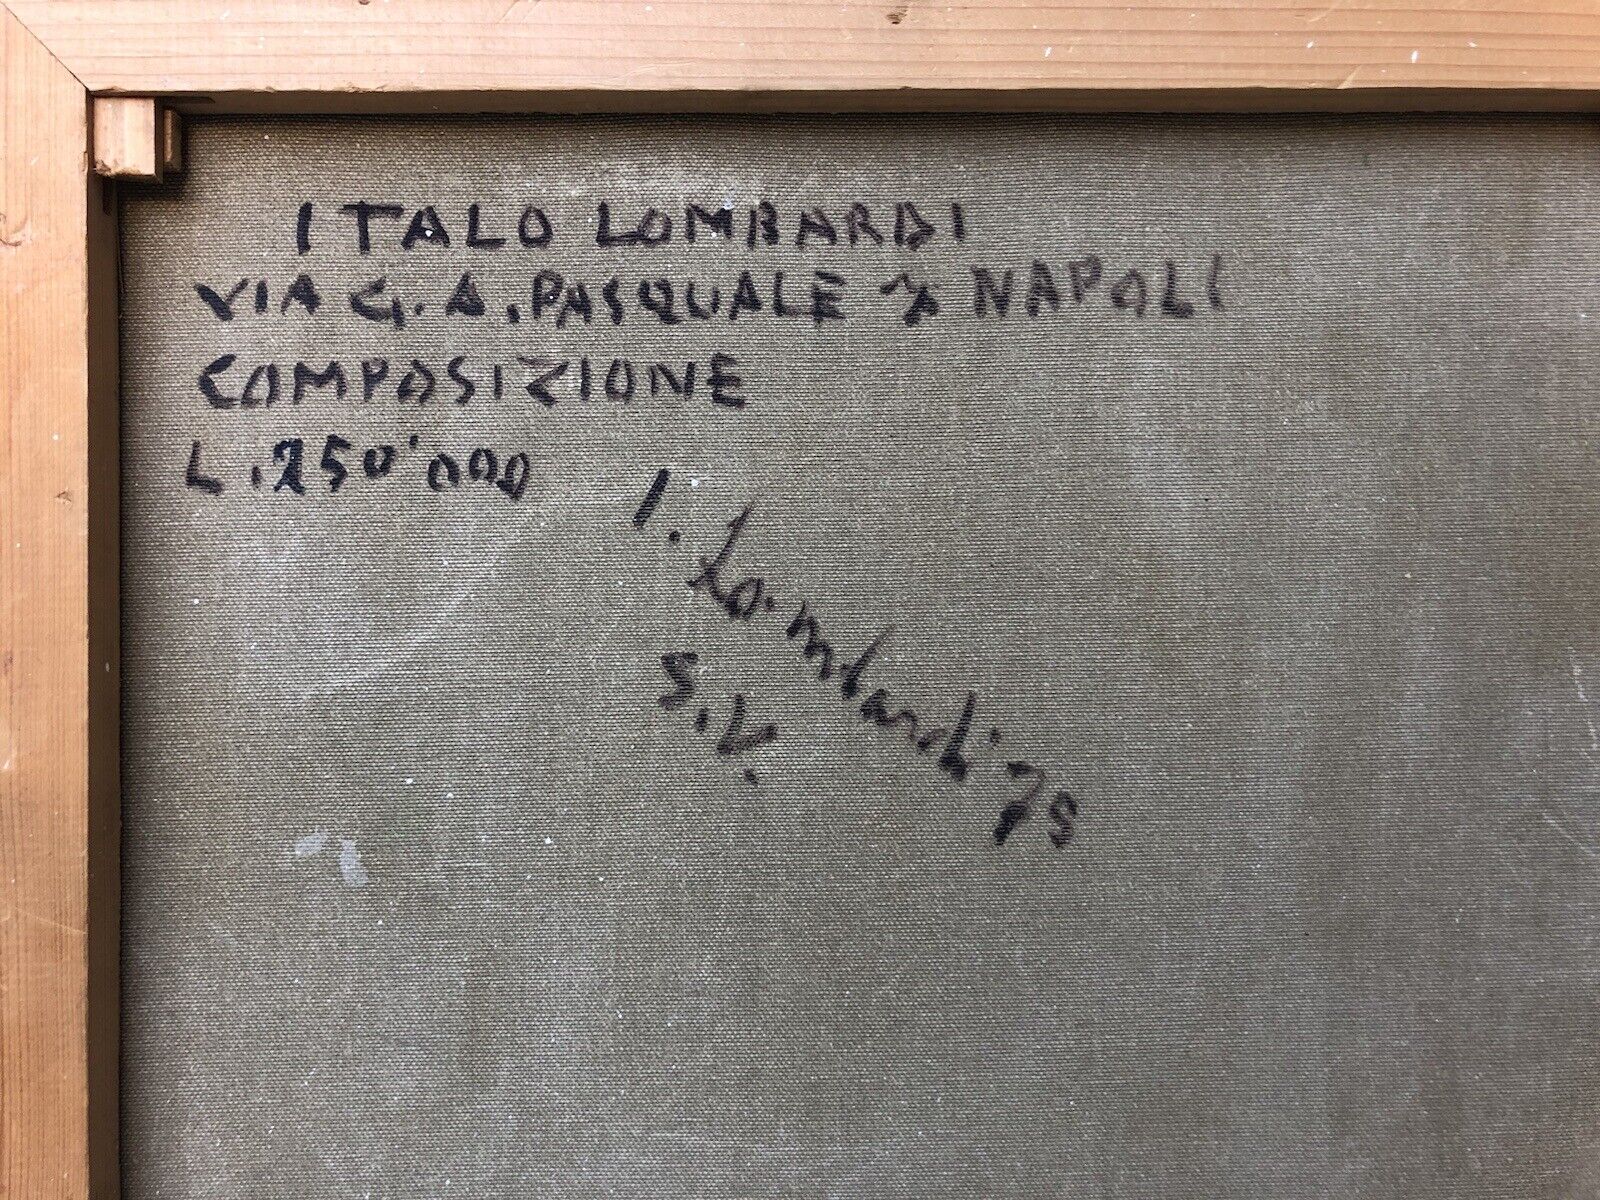 ITALO LOMBARDI
VIA G. A. PASQUALE 7 NAPOLI
COMPOSIZIONE
L. 250'000
I. Lombardi 75
S.V.